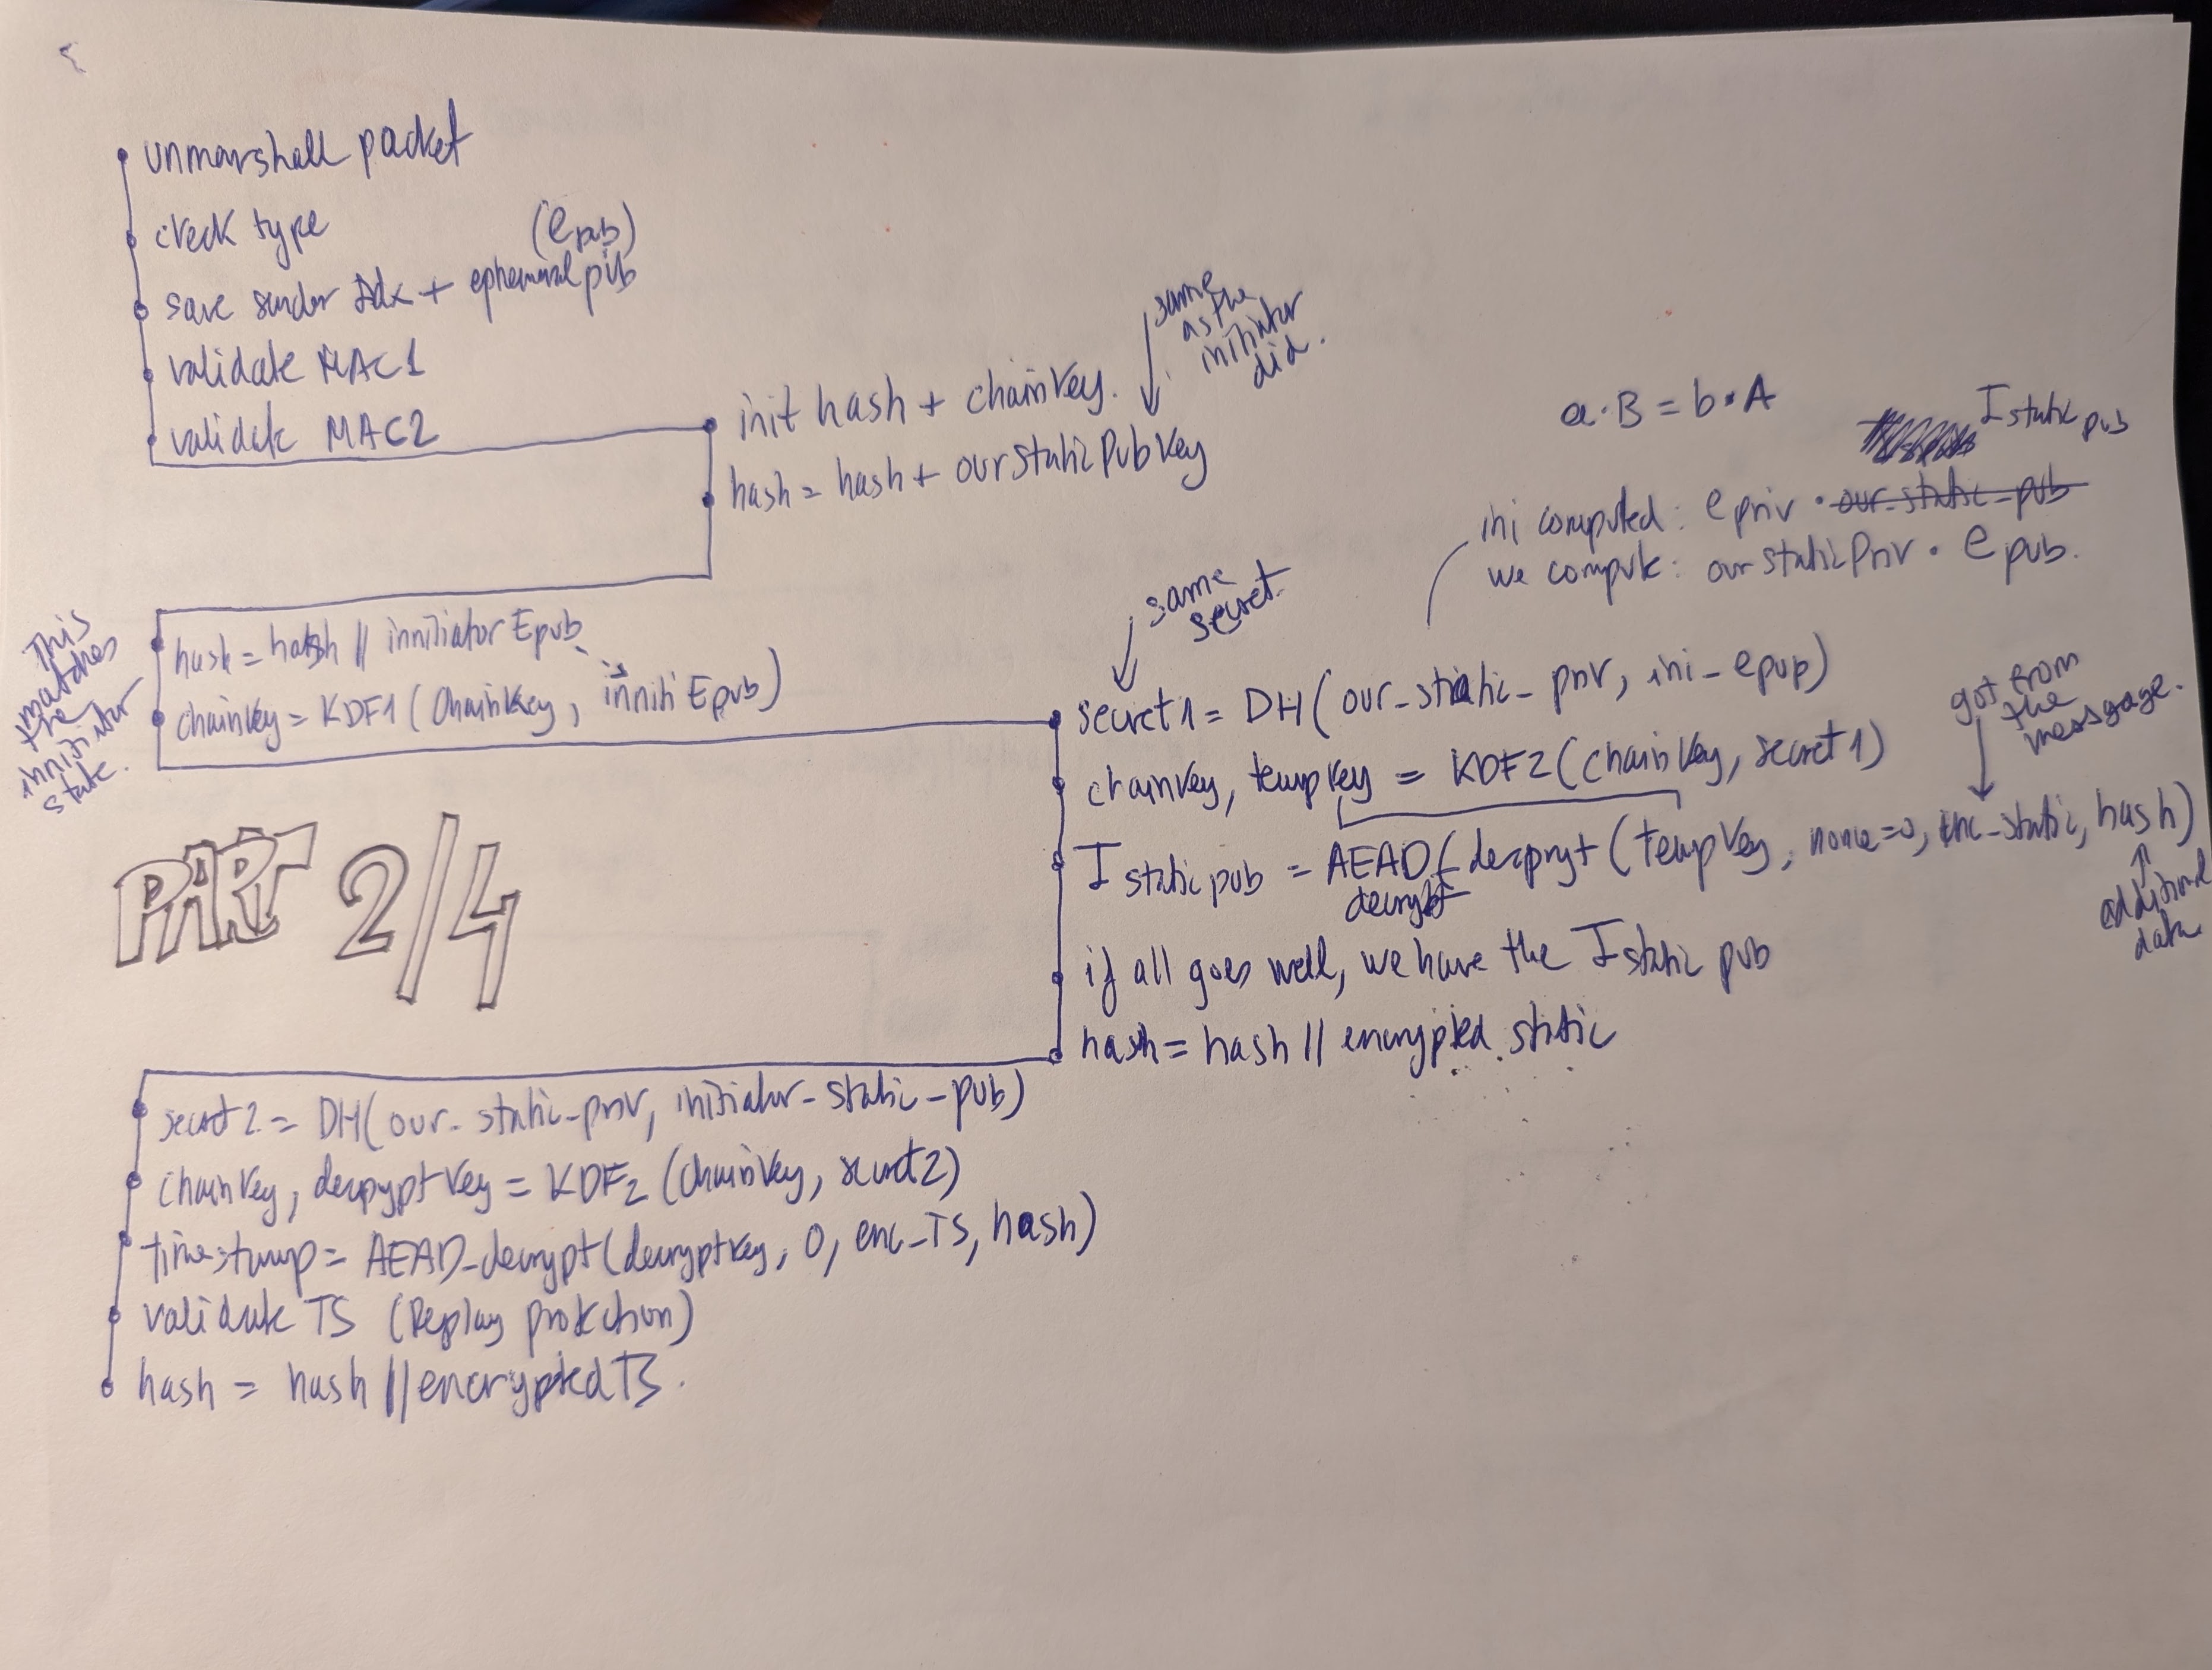 unmarshall packet
check type
(e pub)
save sender Idx + ephemeral pub
validate MAC1
validate MAC2
init hash + chainKey.
same
as the
initiator
did.
hash = hash + ourStaticPubKey
a·B = b·A
I static pub
ini computed: e priv · our-static-pub
we compute: our static Priv · e pub.
This
matches
the
innitiator
state.
hash = hash || innitiator Epub
chainkey = KDF1 (ChainKey, inniti Epub)
same
secret
secret1 = DH(our_static_priv, ini_epub)
chainkey, tempkey = KDF2(chainkey, secret1)
got from
the
message.
I static pub = AEAD (decrypt (tempKey, nonce=0, enc-static, hash)
decrypt
additional
data
if all goes well, we have the I static pub
hash = hash || encrypted static
PART 2/4
secret2 = DH(our_static_priv, initiator-static-pub)
chainKey, decrypt Key = KDF2 (chainKey, secret2)
timestamp = AEAD_decrypt(decryptkey, 0, enc_TS, hash)
validate TS (Replay protection)
hash = hash || encryptedTS.